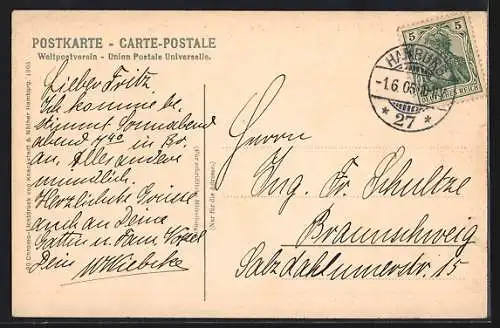 POSTKARTE - CARTE-POSTALE
Weltpostverein - Union Postale Universelle.
Lieber Fritz
Ich komme be,
stimmt Sonnabend
abend 7 40 in Br.
an. Alles andere
mündlich.
Herzlichste Grüsse
auch an Deine
Gattin u. Fam.
Dein
(Nur für die Adresse.)
5
5
HAMBURG
-1.6.05.
* 27 *
DEUTSCHES REICH
Herrn
Ing. Fr. Schultze
Braunschweig
Salzdahlumerstr. 15